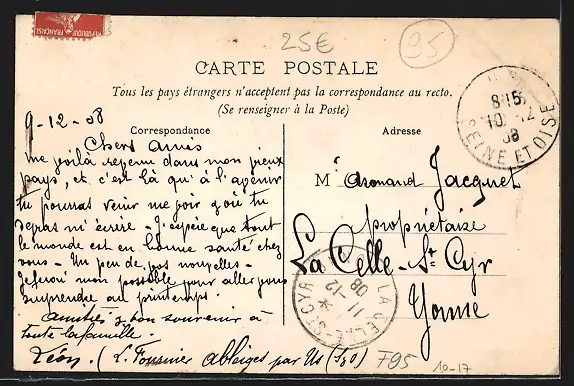 25€
95
CARTE POSTALE
Tous les pays étrangers n'acceptent pas la correspondance au recto.
(Se renseigner à la Poste)
RÉPUBLIQUE FRANÇAISE
8 15
10 - 12
08
SEINE ET OISE
Correspondance
Adresse
9-12-08
Chers Amis
me voilà revenu dans mon vieux
pays, et c'est là qu'à l'avenir
tu pourras venir me voir où tu
devras m'écrire - J'espère que tout
le monde est en bonne santé chez
vous - Un peu de vos nouvelles -
Je ferai mon possible pour aller vous
surprendre au printemps.
amitiés & bon souvenir à
toute la famille.
Léon. (L. Fournier Ableiges par Us (S&O)
Mr Armand Jacquet
propriétaire
La Celle-St Cyr
Yonne
LA CELLE-ST-CYR
11 - 12
08
F95
10-17